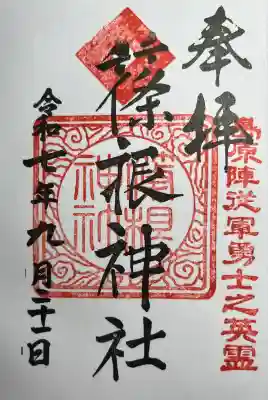 奉拝
島原陣從軍勇士之英霊
神社
令和七年九月二十一日